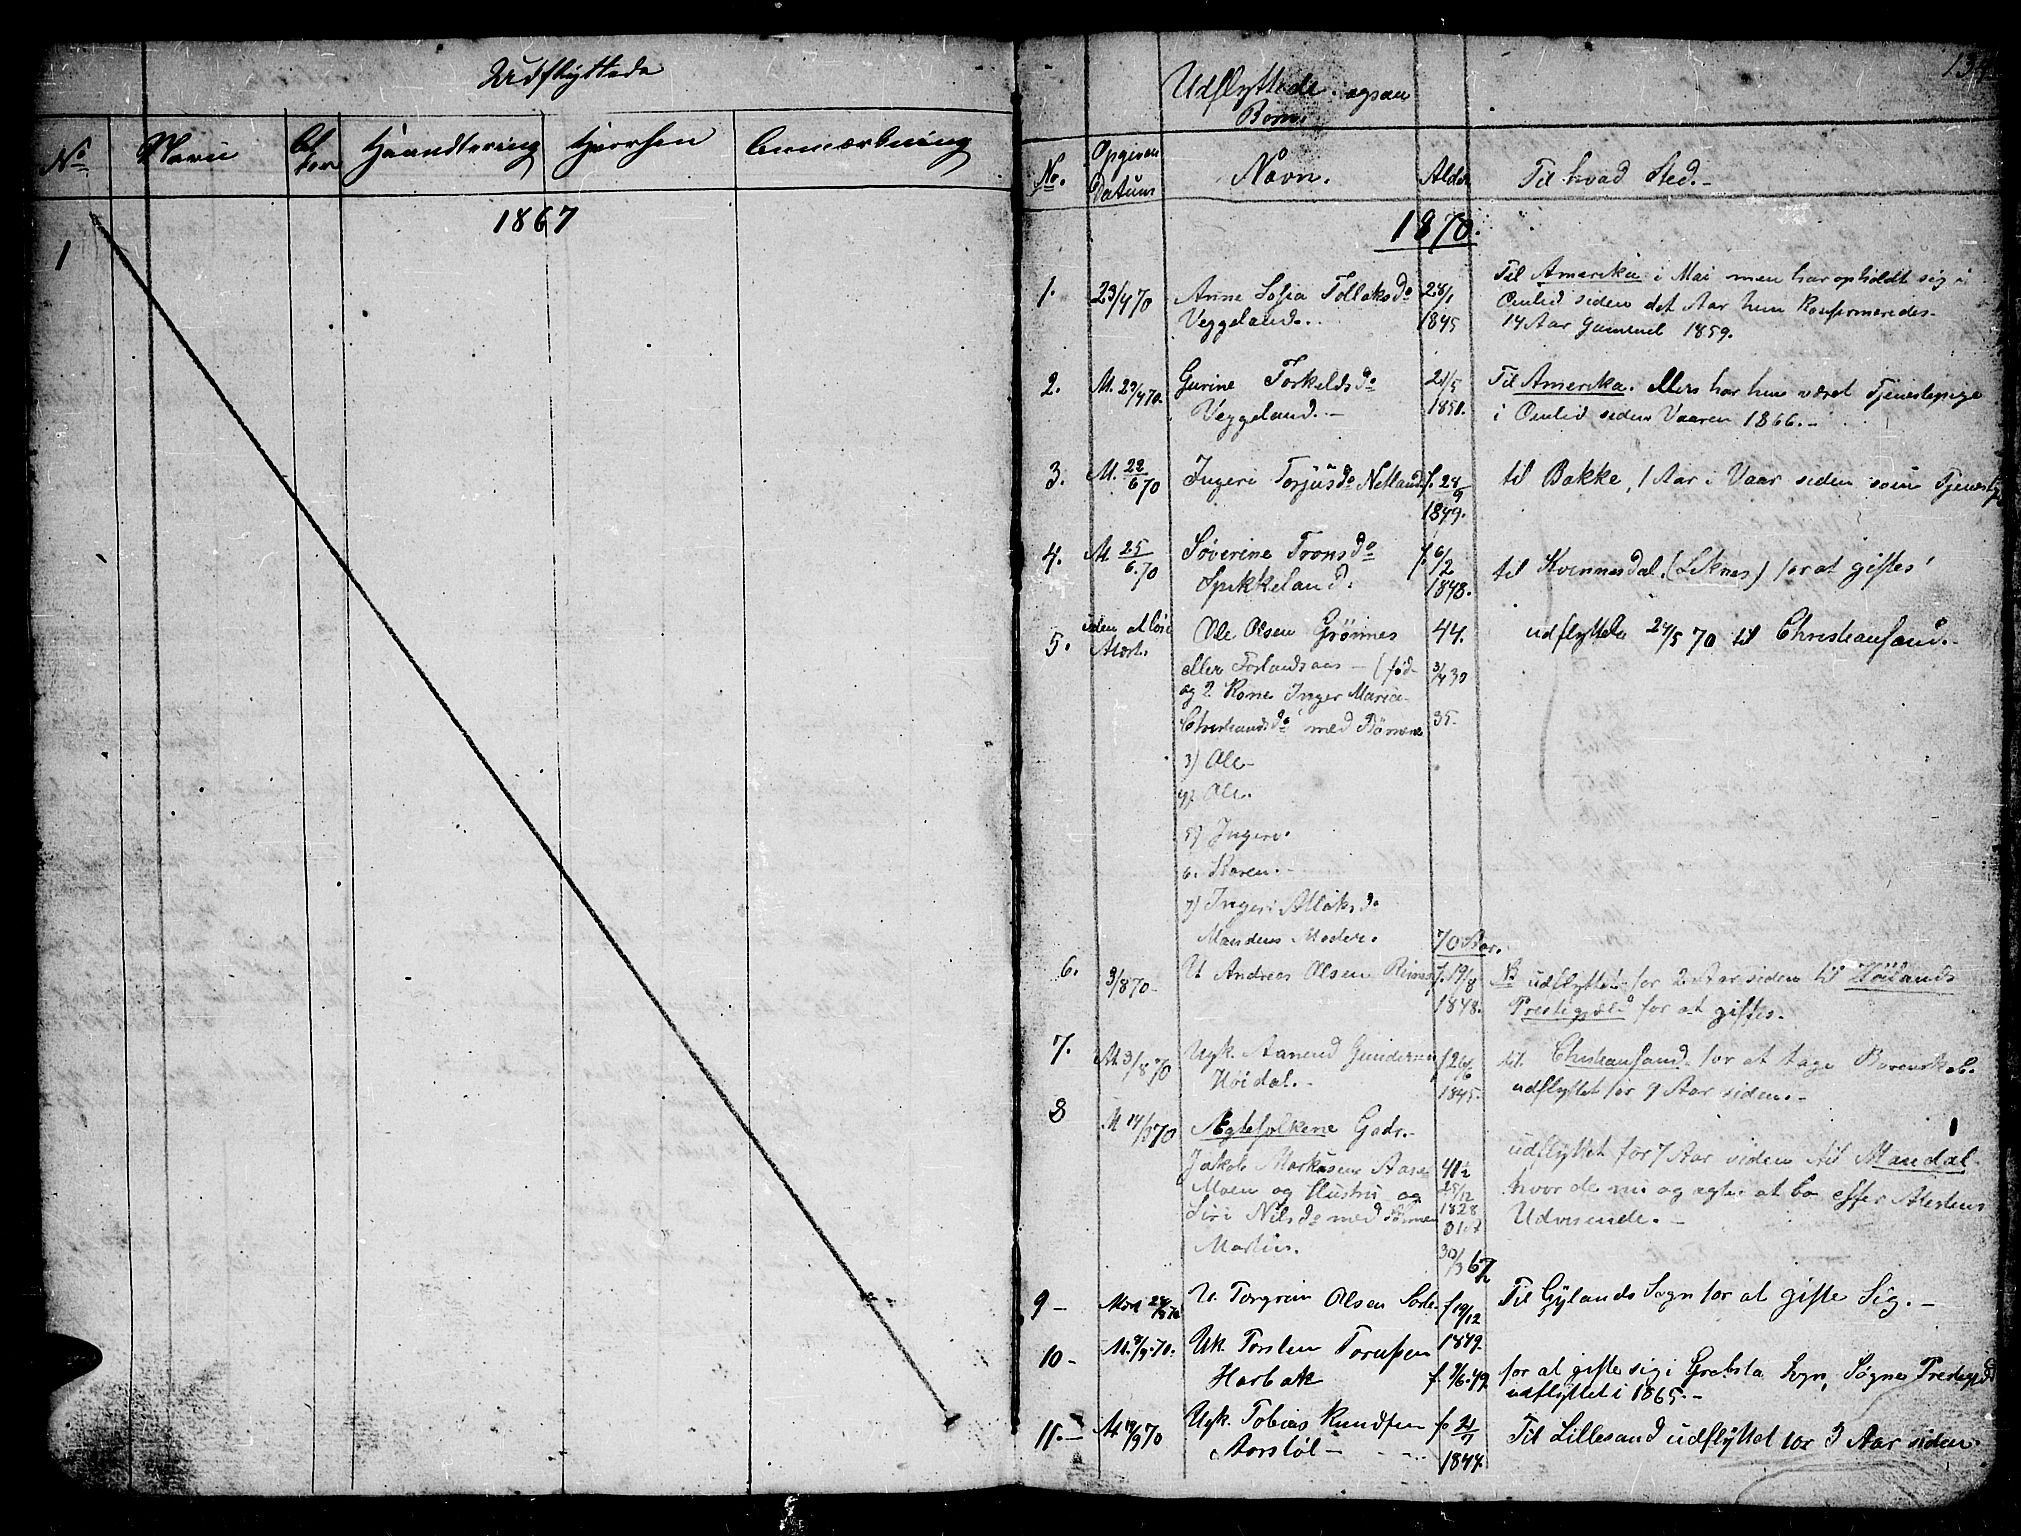 Udflyttede
No
Navn
Al
der
Haandtering
Hvorhen
Anmærkning
1867
1
Udflyttede
Børn
No.
Opgiven
Datum
Navn.
Alder
Til hvad Sted.-
1870.
1.
23/4 70
Anne Sofia Tollaksdo
Veggeland.
28/1
1845
Til Amerika i Mai men har opholdt sig i
Omlid siden det Aar hun konfirmeredes
14 Aar gammel 1859.
2.
M. 23/4 70.
Gurine Torkeldsdo
Veggeland.-
21/5
1850.
Til Amerika. Ellers har hun været Tjenestepige
i Omlid siden Vaaren 1866.-
3.
M. 22/6 70
Ingeri Torjusdo Netland
f. 24/9
1849.
til Bakke, 1 Aar i Vaar siden som
4.
M 25/6.70
Søverine Tronsdo
Spikkeland.
f. 6/2
1848.
til Kvinnesdal. (Liknes) for at giftes
5.
uden at løse
Attest.
Ole Olsen Grønnes
eller Forlandsaas - (fød
og 2 Kone Inger Marie
Christiansdo med Børnene
44.
3/4 30
35.
udflyttede 24/5 70 til Christiansand.-
3) Ole-
4) Ole.
5) Ingeri.
6. Karen.-
7) Ingeri Atlaksdo
Mandens Moder.
70 Aar.
6.
3/8 70-
U Andreas Olsen
f. 19/8
1848.
NB udflyttet for 2 Aar siden til Høilands
Prestegjæld for at giftes.
7.
At 3/8 70
Ugk. Aanend Gundersen
Høidal.-
f 26/6
1845.
til Christiansand for at tage Borerskab.
udflyttet for 9 Aar siden.-
8
M 14/8 70
Ægtefolkene Gdr.-
Jakob Markusen Aase
Moen og Hustru og
Siri Nilsdo med Sønnen
Martin.
41½
25/12
1828
30/3 67
udflyttet for 7 Aar siden til Mandal.
hvor de nu og agter at bo efter Attestens
Udvisende.-
9-
U. Torgrim Olsen
f 19/12
1849.
Til Gylands Sogn for at gifte Sig.-
10-
M. 8/9.70.
Uk. Torsten
Harbak
f. 9/6.49.
for at gifte sig i Sogn, Søgne Prestegjd
udflyttet i 1865.-
11.-
At 18/9 70
Ugk. Tobias
f. 21/7
1847.
Til Lillesand udflyttet for 3 Aar siden